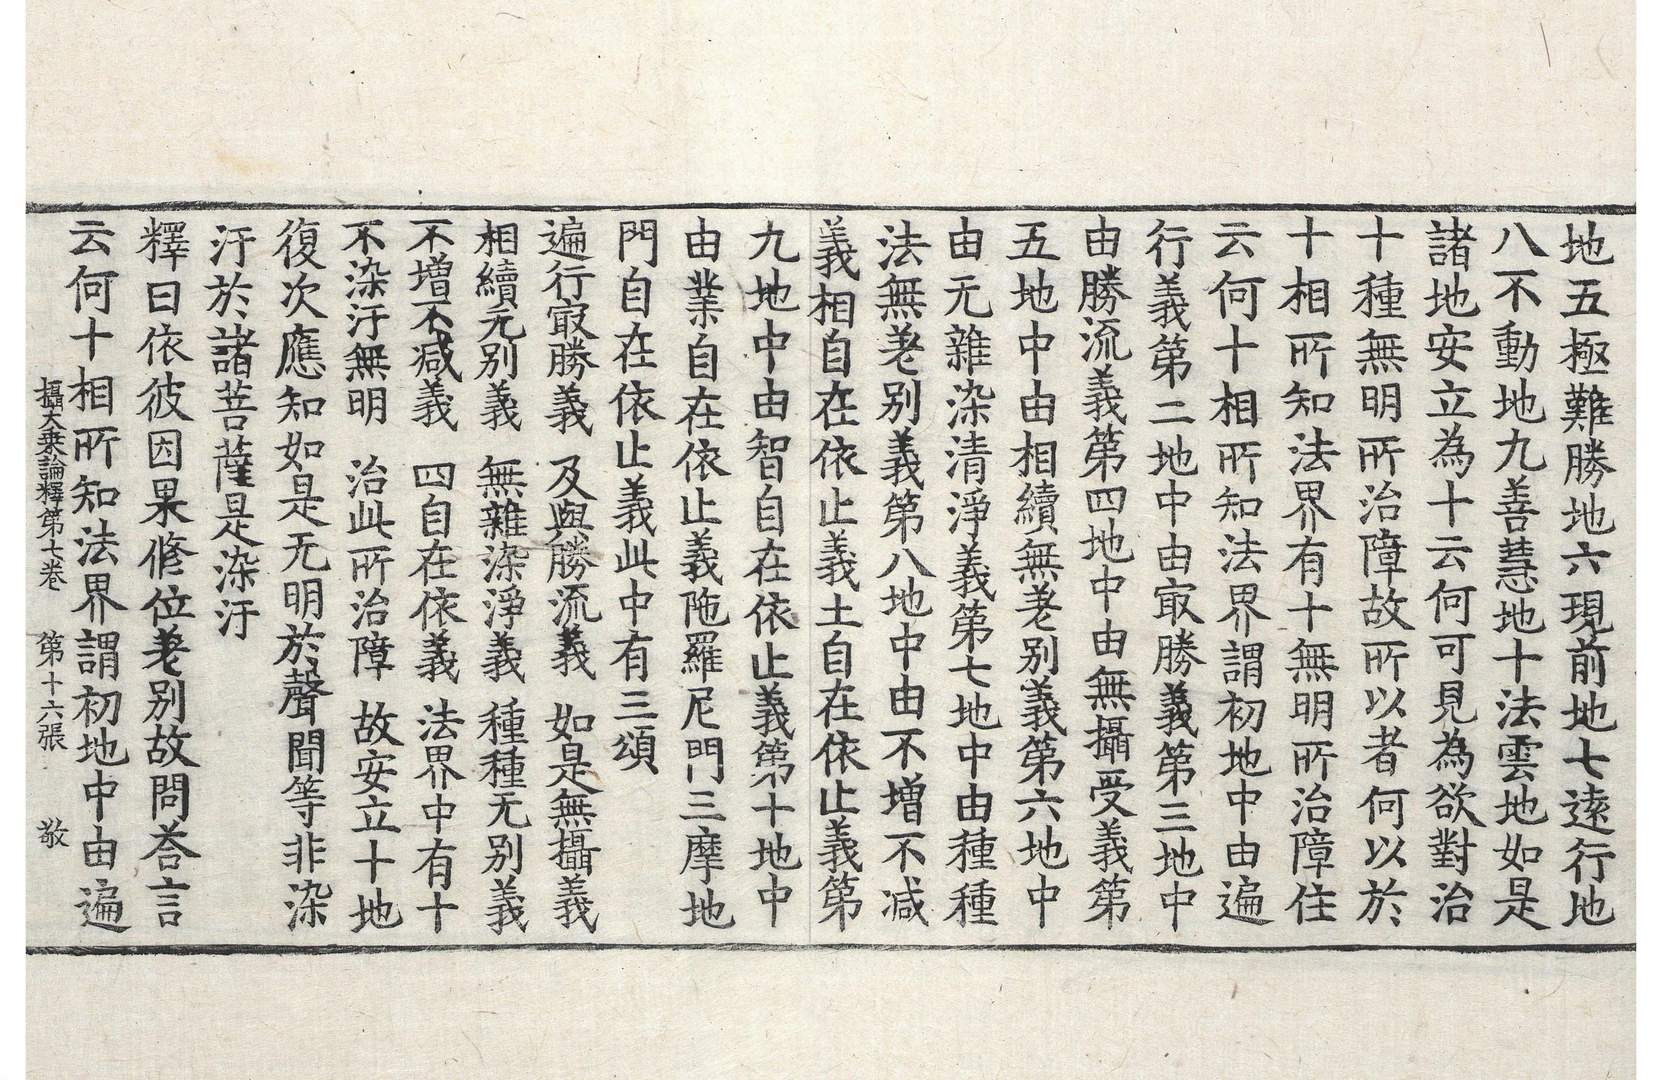 地五極難勝地六現前地七遠行地
八不動地九善慧地十法雲地如是
諸地安立為十云何可見為欲對治
十種無明所治障故所以者何以於
十相所知法界有十無明所治障住
云何十相所知法界謂初地中由遍
行義第二地中由㝡勝義第三地中
由勝流義第四地中由無攝受義第
五地中由相續無差別義第六地中
由无雜染清淨義第七地中由種種
法無差別義第八地中由不增不减
義相自在依止義土自在依止義第
九地中由智自在依止義第十地中
由業自在依止義陁羅尼門三摩地
門自在依止義此中有三頌
遍行㝡勝義　及與勝流義　如是無攝義
相續无別義　無雜染淨義　種種无別義
不增不减義　四自在依義　法界中有十
不染汙無明　治此所治障　故安立十地
復次應知如是无明於聲聞等非染
汙於諸菩薩是染汙
釋曰依彼因果修位差別故問荅言
云何十相所知法界謂初地中由遍
攝大乗論釋第七卷　第十六張　敬